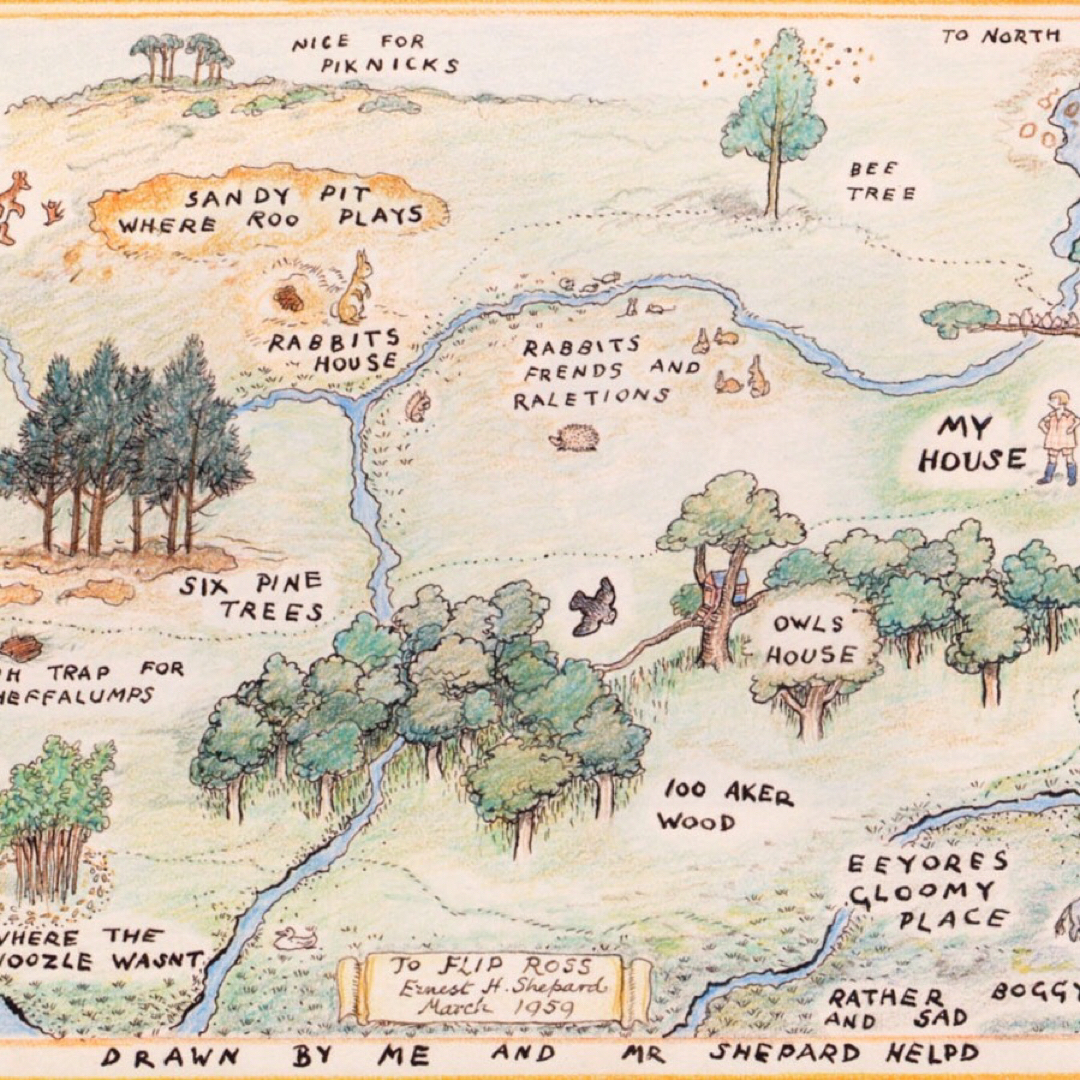 NICE FOR
PIKNICKS
TO NORTH
BEE
TREE
SANDY PIT
WHERE ROO PLAYS
RABBITS
HOUSE
RABBITS
FRENDS AND
RALETIONS
MY
HOUSE
SIX PINE
TREES
OWLS
HOUSE
H TRAP FOR
HEFFALUMPS
100 AKER
WOOD
EEYORES
GLOOMY
PLACE
WHERE THE
WOOZLE WASNT
TO FLIP ROSS
Ernest H. Shepard
March 1959
RATHER BOGGY
AND SAD
DRAWN BY ME AND MR SHEPARD HELPD